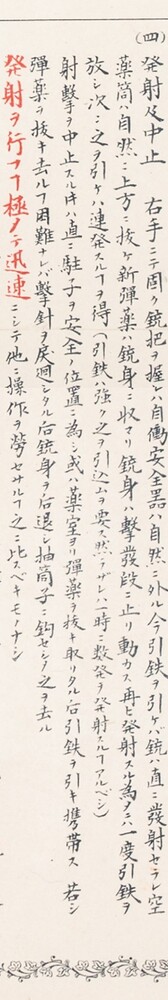 (四) 発射及中止 右手ニテ固ク銃把ヲ握レハ自働安全器ハ自然ニ外ル今引鉄ヲ引ケバ銃ハ直ニ發射セラレ空
薬筒ハ自然ニ上方ニ抜ケ新弾薬ハ銃身ニ収マリ銃身ハ撃發段ニ止リ動カス再ヒ発射スル為メニハ一度引鉄ヲ
放シ次ニ之ヲ引ケハ連発スルヿヲ得(引鉄ハ強ク之ヲ引込ムヲ要ス然ラザレハ一時ニ数発ヲ発射スルヿアルベシ)
射撃ヲ中止スル片ハ直ニ駐子ヲ安全ノ位置ニ為シ或ハ薬室ヨリ彈薬ヲ抜キ取リタル后引鉄ヲ引キ携帯ス 若シ
彈薬ヲ抜キ去ルヿ困難ナレバ撃針ヲ戻廻シタル后銃身ヲ后退シ抽筒子ニ鈎セシメ之ヲ去ル
発射ヲ行フヿ極メテ迅速ニシテ他ニ操作ヲ労セサルヿ之ニ比スベキモノナシ